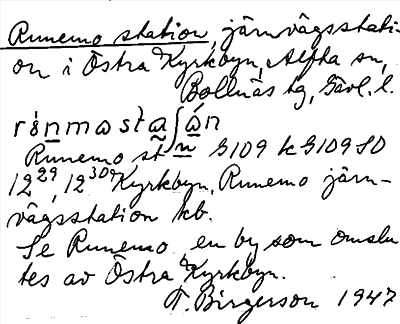 Runemo station, järnvägsstati-
on i Östra Kyrkbyn, Alfta sn,
Bollnäs tg, Gävl. l.
Runemo st G109 k G109 SO
12 29, 12 30 Kyrkbyn, Runemo järn-
vägsstation kb.
Se Runemo en by som omslu
tes av Östra Kyrkbyn.
T. Birgerson 1947